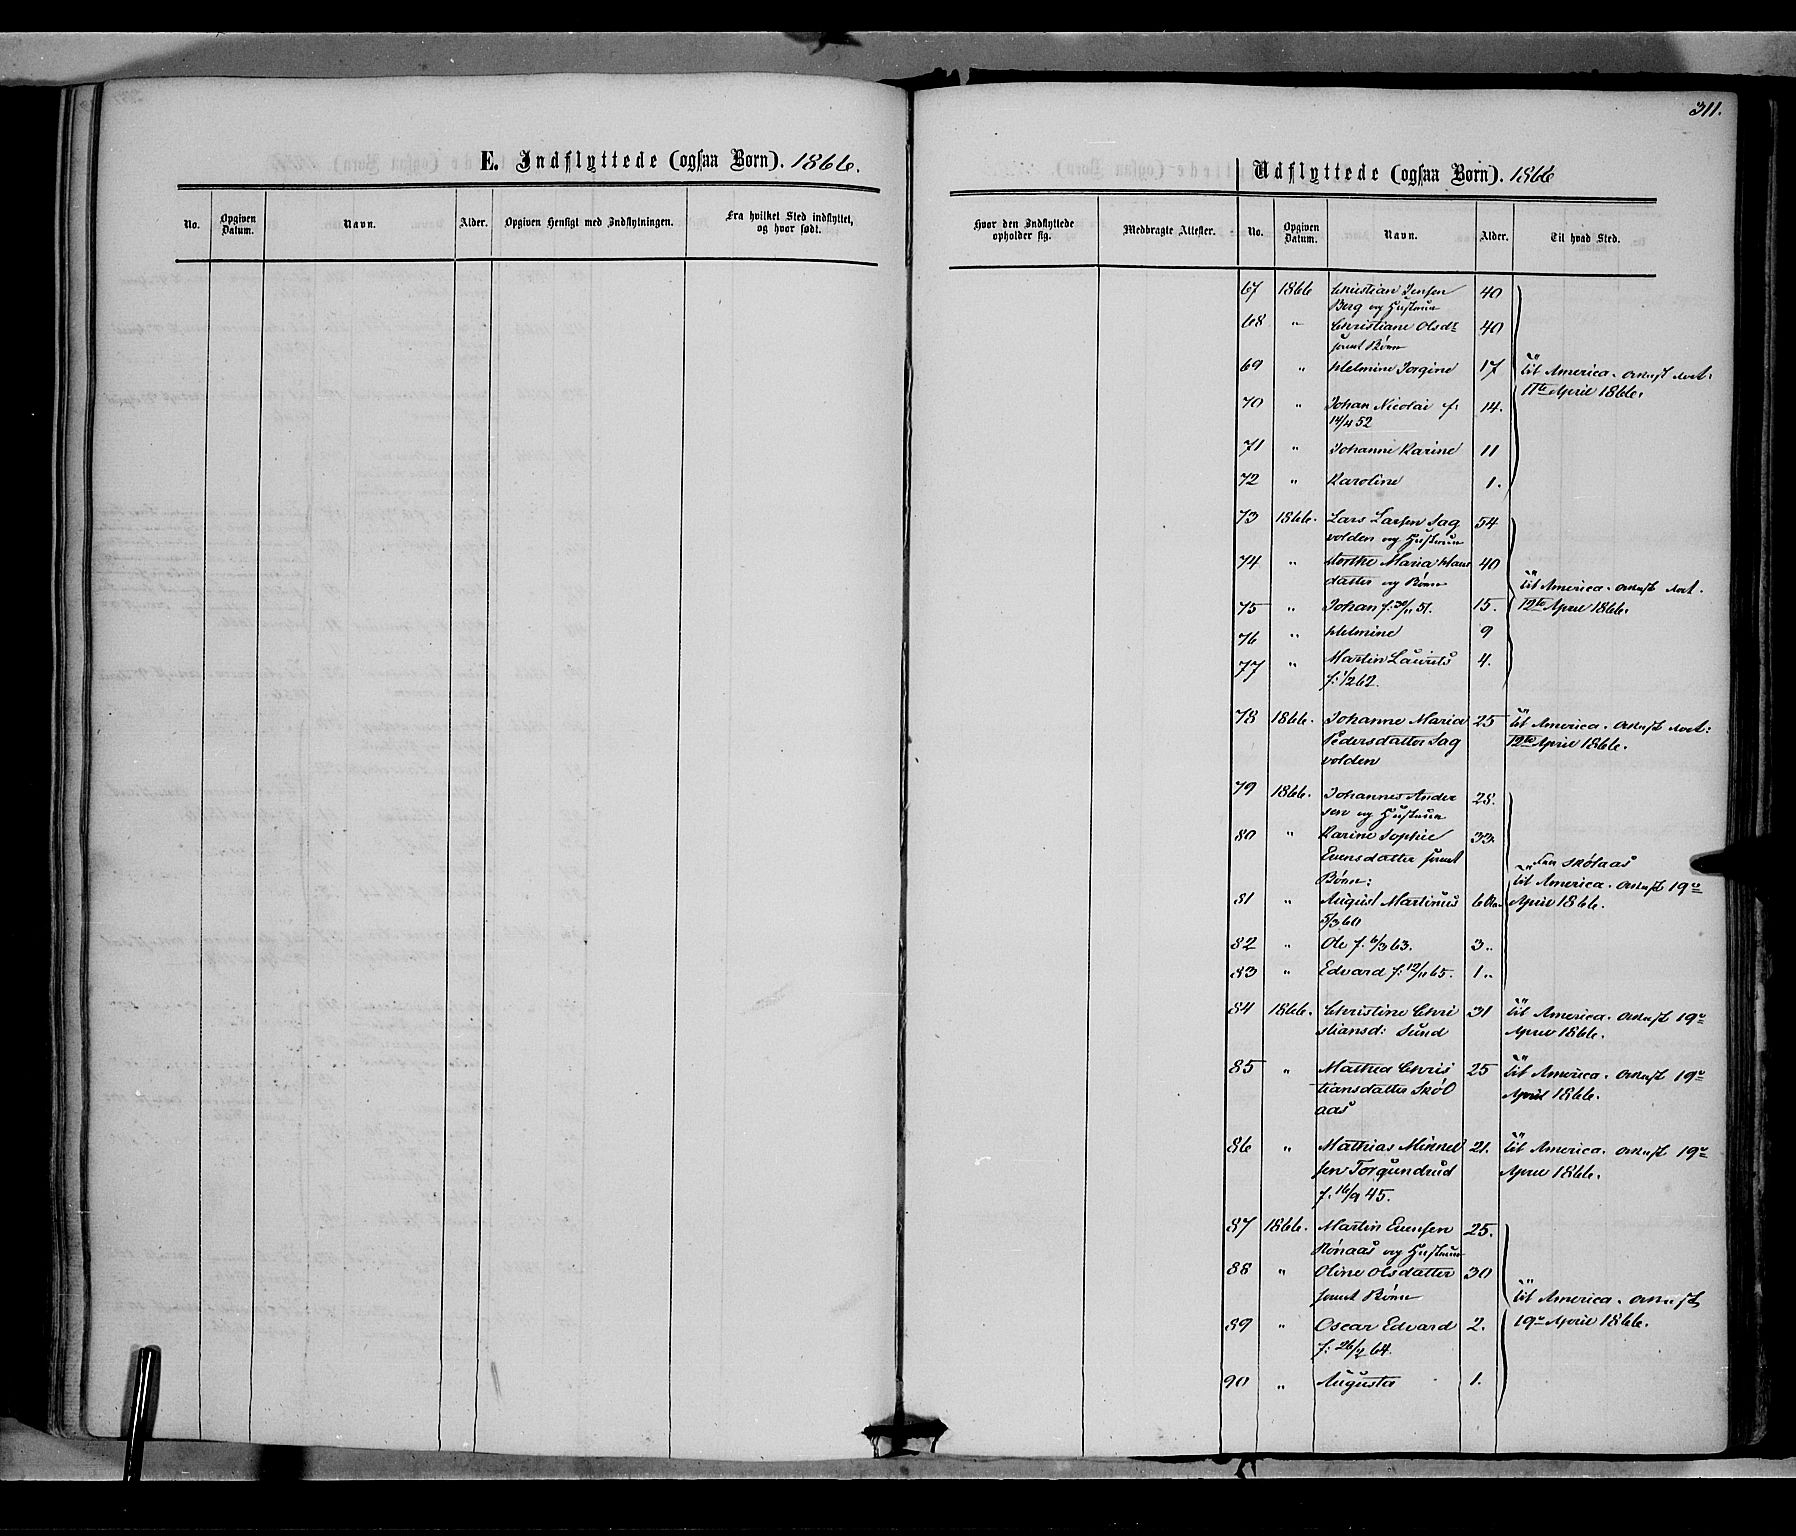 311.
E. Indflyttede (ogsaa Børn). 1866.
No. Opgiven Datum. Navn. Alder. Opgiven Hensigt med Indflytningen. Fra hvilket Sted indflyttet, og hvor født.
Udflyttede (ogsaa Børn). 1866
Hvor den Indflyttede opholder sig. Medbragte Attester. No. Opgiven Datum. Navn. Alder. Til hvad Sted.
67 1866 Christian Jensen 40
Berg og Hustrue
68 " Christiane Olsdr 40
samt Børn
69 " Helmine Jorgine 17 Til America.
11te April 1866.
70 " Johan Nicolai f. 14.
14/4 52
71 " Johanne Karine 11
72 " Karoline 1.
73 1866. Lars Larsen Sag 54
volden og Hustrue
74 " Dorthe Maria Hans 40
datter og Børn
Til America.
75 " Johan f. 30/11 51. 15. 12te April 1866.
76 " Helmine 9
77 " Martin Laurits 4.
f: 1/2 62.
78 1866. Johanne Maria 25 Til America.
Pedersdatter Sag 12te April 1866.
volden
79 1866. Johannes Ander 28.
sen og Hustrue
80 " Karine Sophie 33.
Evensdatter samt Fra Skolaas
Børn: Til America. 19de
81 " August Martinus 6 April 1866.
5/3 60
82 " Ole f. 6/3 63. 3..
83 " Edvard f: 12/11 65. 1..
84 1866. Christine Chri 31 Til America. 19de
stiansd: Sund April 1866.
85 " Mathea Chris 25 Til America. 19de
tiansdatter Skøl April 1866.
aas
86 " Mathias Mikkel 21. Til America. 19de
sen Torgundrud April 1866.
f. 16/9 45.
87 1866. Martin Evensen 25.
Rønaas og Hustrue
88 " Oline Olsdatter 30
samt Børn Til America.
89 " Oscar Edvard 2. 19de April 1866.
f: 26/2 64.
90 " Augusta 1.